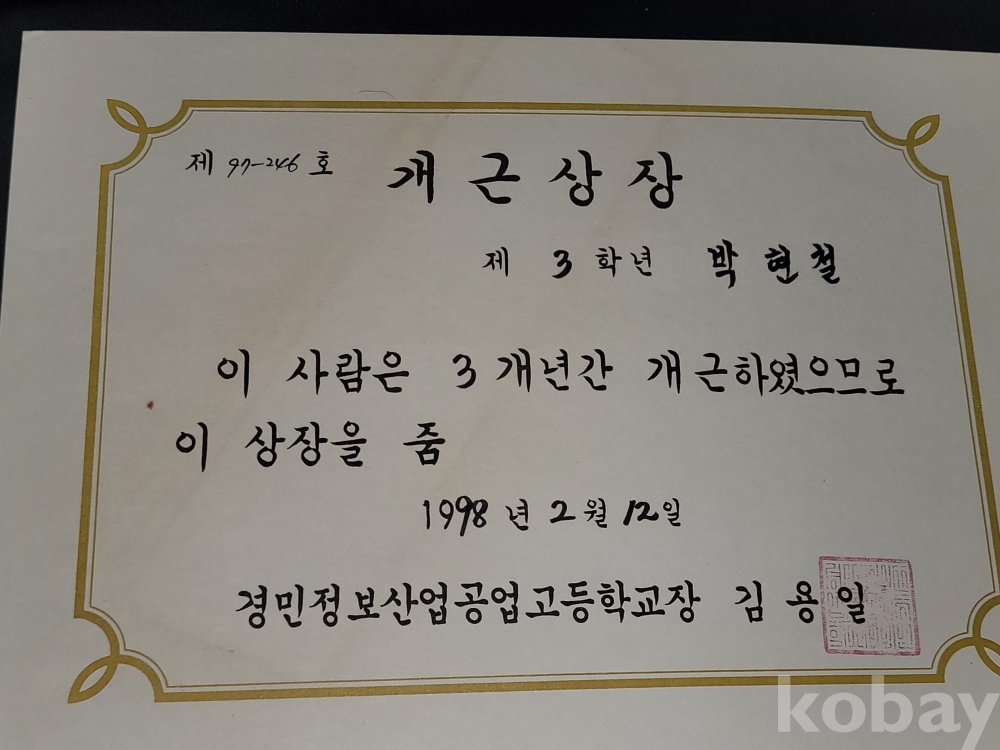 제 97-246 호
개근상장
제 3 학년 박현철
이 사람은 3 개년간 개근하였으므로
이 상장을 줌
1998 년 2 월 12 일
경민정보산업공업고등학교장 김용일
kobay